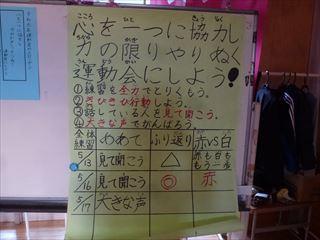 心を一つに協力し
こころ ひと きょうりょく
力の限りやりぬく
運動会にしよう!
①練習を全力でとりくもう。
②きびきび行動しよう。
③話している人を見て聞こう。
④大きな声でがんばろう。
全体練習 めあて ふり返り 赤VS白
5/13 見て聞こう △ 赤も白ももう一歩
5/16 見て聞こう ◎ 赤
5/17 大きな声